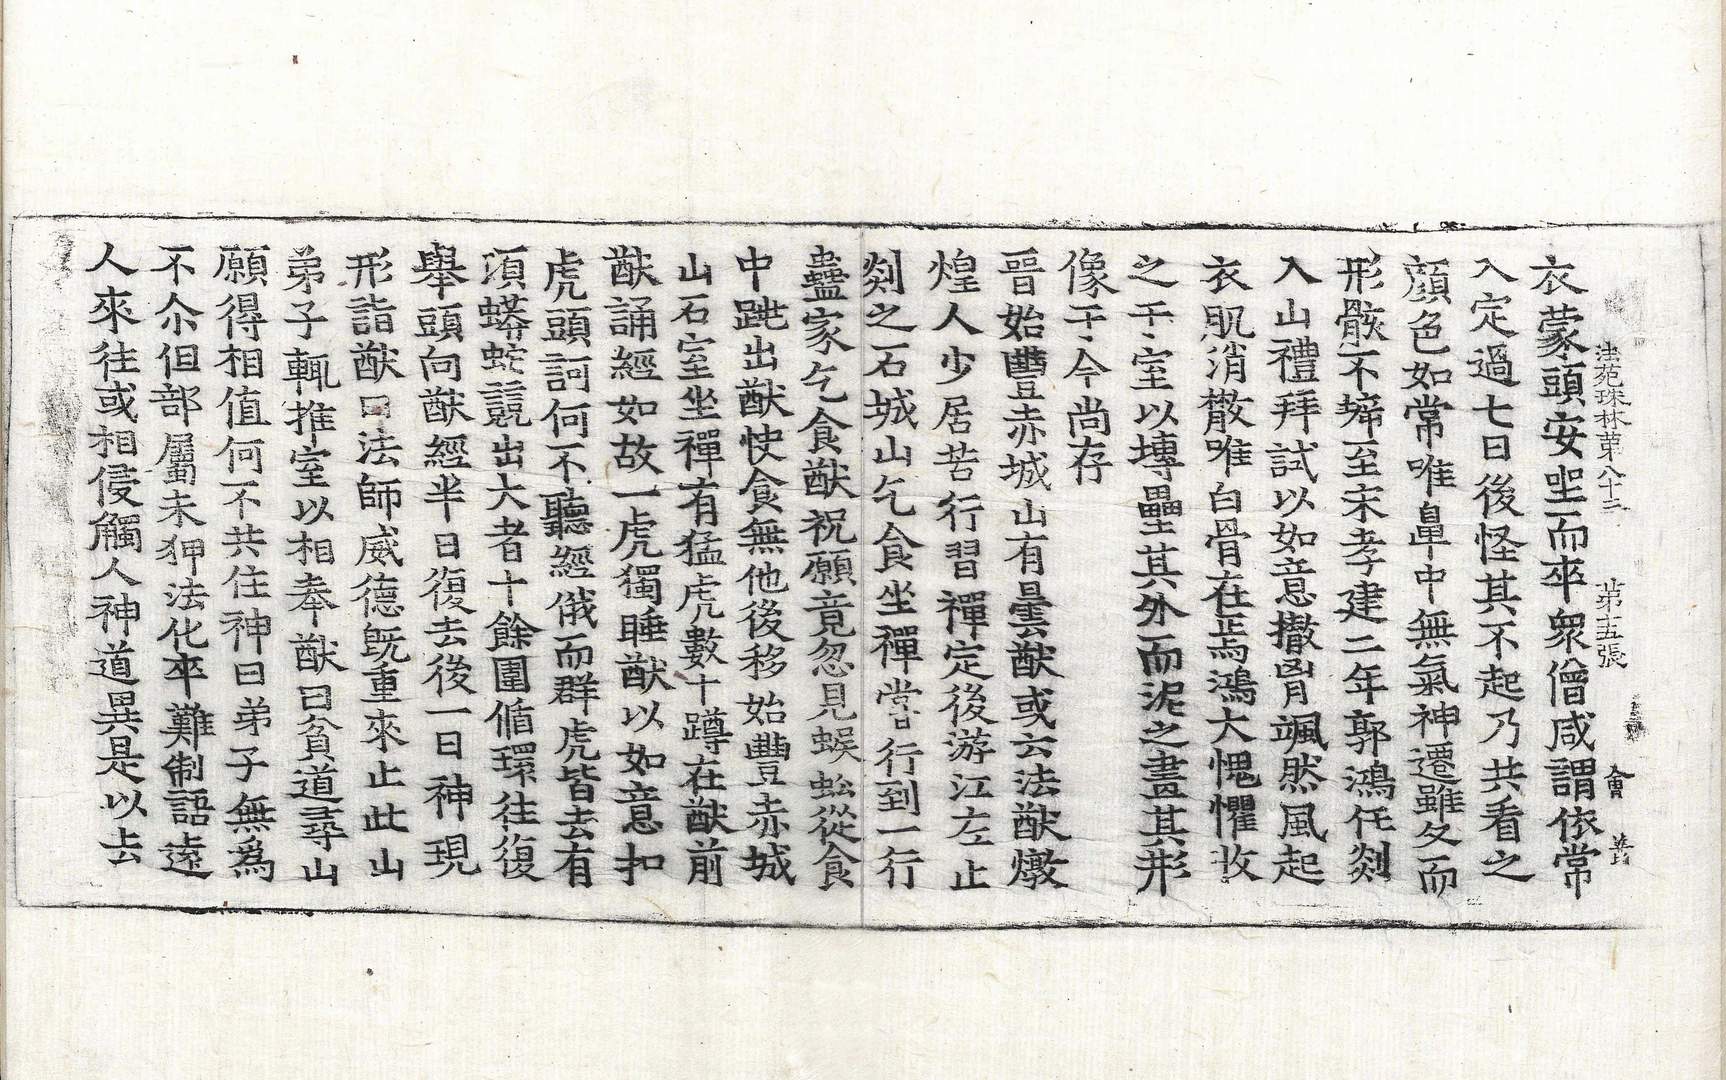 法苑珠林第八十三 第十五張 會
衣蒙頭安坐而卒衆僧咸謂依常
入定過七日後怪其不起乃共看之
顔色如常唯鼻中無氣神遷雖久而
形骸不㱙至宋孝建二年郭鴻任剡
入山禮拜試以如意撥胷颯然風起
衣肌消散唯白骨在焉鴻大愧懼收
之于室以塼壘其外而泥之畫其形
像于今尚存
晉始豐赤城山有曇猷或云法猷燉
煌人少居苦行習禪定後游江左止
剡之石城山乞食坐禪嘗行到一行
蠱家乞食猷祝願竟忽見蜈蚣從食
中跳出猷快食無他後移始豐赤城
山石室坐禪有猛虎數十蹲在猷前
猷誦經如故一虎獨睡猷以如意扣
虎頭訶何不聽經俄而群虎皆去有
頃蟒蛇競出大者十餘圍循環往復
舉頭向猷經半日復去後一日神現
形詣猷曰法師威德旣重來止此山
弟子輒推室以相奉猷曰貧道尋山
願得相值何不共住神曰弟子無爲
不尒但部屬未狎法化卒難制語遠
人來往或相侵觸人神道異是以去